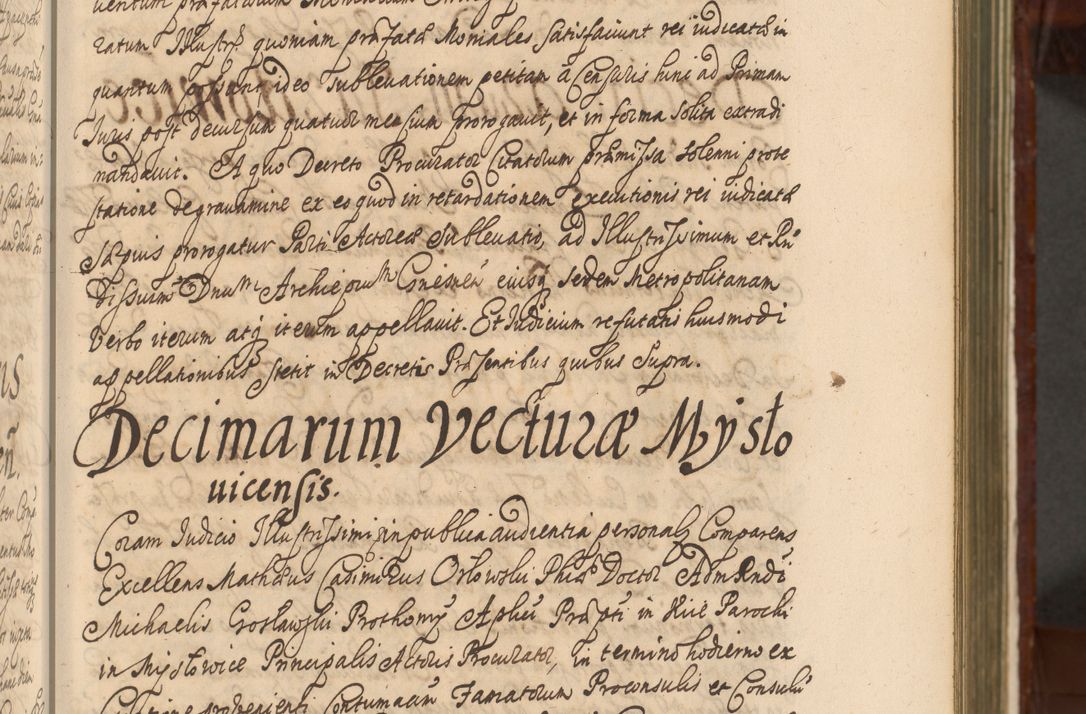 ratum Illustris quoniam præfatæ Moniales satisfaciunt rei iudicatæ in
quantum possunt, ideo sublevationem petitam à Censuris huic ad Primam
Iuris post decursum quatuor mensium prorogavit, et in forma solita extradi
mandavit. A quo Decreto Procurator Citatorum præmissa solenni prote
statione de gravamine ex eo quod in retardationem executionis rei iudicatæ
sæpius prorogatur Parti Actoreæ Sublevatio, ad Illustrissimum et Rñ
dissimũ Dnum Archiepium Gnesnen eiusq Sedem Metropolitanam
verbo iterum atq iterum appellavit. Et Iudicium refutatis huiusmodi
appellationibus stetit in Decretis Præsentibus quibus supra.
Decimarum Vecturæ Mysło
vicensis.
Coram Iudicio Illustrissimi in publica audientia personalr Comparens
Excellens Mathæus Casimirus Orłowski Phiæ Doctor Adm Rndi
Michaelis Grosławski Prothonrÿ Aplici Præpti in Parochi
in Mysłowice Principalis Actoris Procurator, in termino hodierno ex
Contumaciam Famatorum Proconsulis et Consulũ